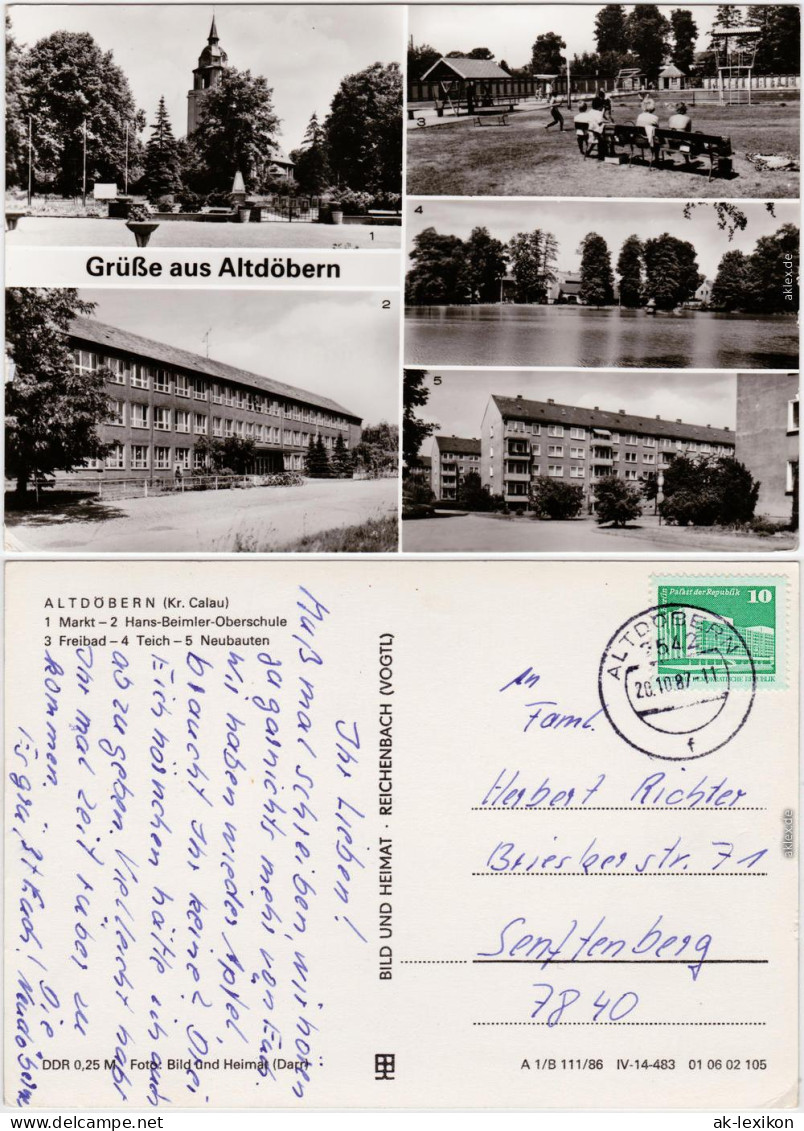 1
Grüße aus Altdöbern
2
3
4
5
aklex.de
ALTDÖBERN (Kr. Calau)
1 Markt – 2 Hans-Beimler-Oberschule
3 Freibad – 4 Teich – 5 Neubauten
Ihr Lieben!
Muß mal schreiben, wir hören
ja garnichts mehr von Euch
Wir haben wieder Äpfel,
braucht Ihr keine?
Eich hörnchen hätte ich auch
ab zu geben. Vielleicht habt
Ihr mal Zeit rüber zu
kommen.
Es grüßt Euch! Die
BILD UND HEIMAT · REICHENBACH (VOGTL)
Palast der Republik 10
ALTDÖBERN
3542
20.10.87-11
f
An
Faml.
Herbert Richter
Briesker str. 71
Senftenberg
7840
aklex.de
DDR 0,25 M Foto: Bild und Heimat (Darr)
A 1/B 111/86 IV-14-483 01 06 02 105
ak-lexikon